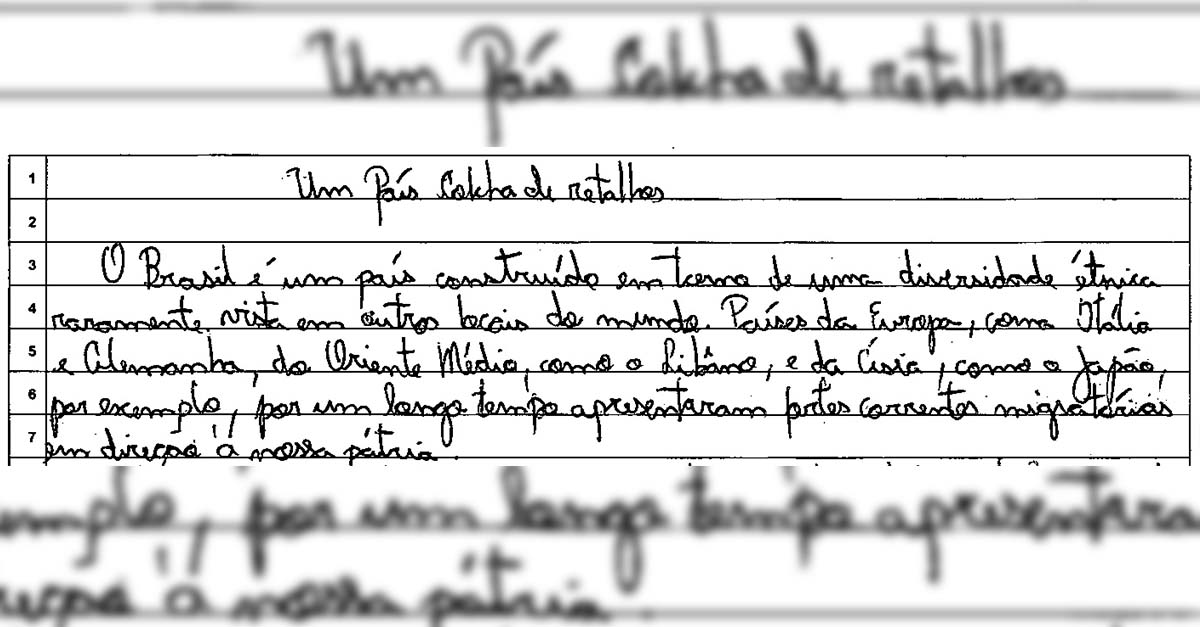 Um País Colcha de retalhos
1 Um País Colcha de retalhos
2
3 O Brasil é um país construído em torno de uma diversidade étnica
4 raramente vista em outros locais do mundo. Países da Europa, como Itália
5 e Alemanha, do Oriente Médio, como o Líbano, e da Ásia, como o Japão,
6 por exemplo, por um longo tempo apresentaram fortes correntes migratórias
7 em direção à nossa pátria.
emplo, por um longo tempo apresentara
reção à nossa pátria.